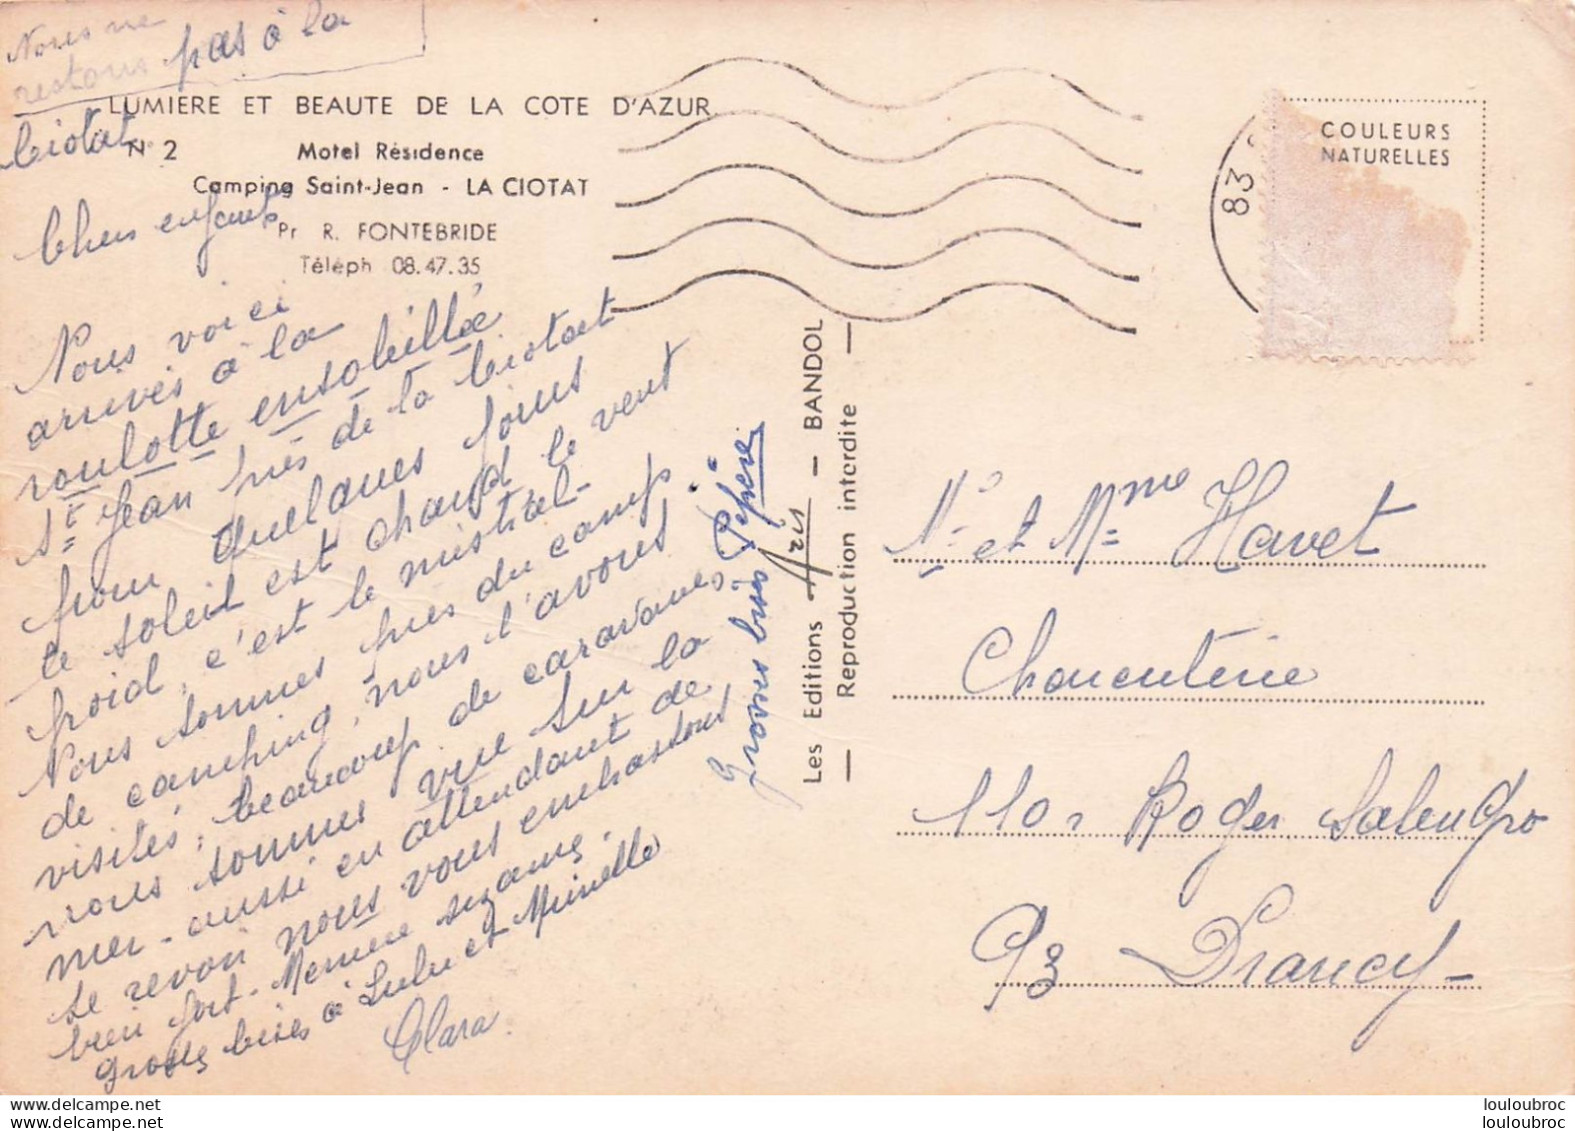 Nous ne
restons pas à la
Ciotat
LUMIERE ET BEAUTE DE LA COTE D'AZUR
N° 2
Motel Résidence
Camping Saint-Jean - LA CIOTAT
Pr R. FONTEBRIDE
Téléph 08.47.35
Chers enfants
Nous voici
arrivés à la
roulotte ensoleillée
St Jean près de la Ciotat
pour quelques jours
le soleil est chaud le vent
froid, c'est le mistral -
Nous sommes près du camp
de camping, nous l'avons
visités, beaucoup de caravanes
nous sommes vue sur la
mer - aussi en attendant de
se revoir nous vous embrassons
bien fort - Memere suzanne.
Grosses bises à Lulu et Mireille
Clara.
Grosses bises Pépère
Les Editions Aris - BANDOL
— Reproduction interdite —
83
COULEURS
NATURELLES
Mr et Mme Havet
Charcuterie
110, Roger Salengro
93 Drancy -
louloubroc
louloubroc